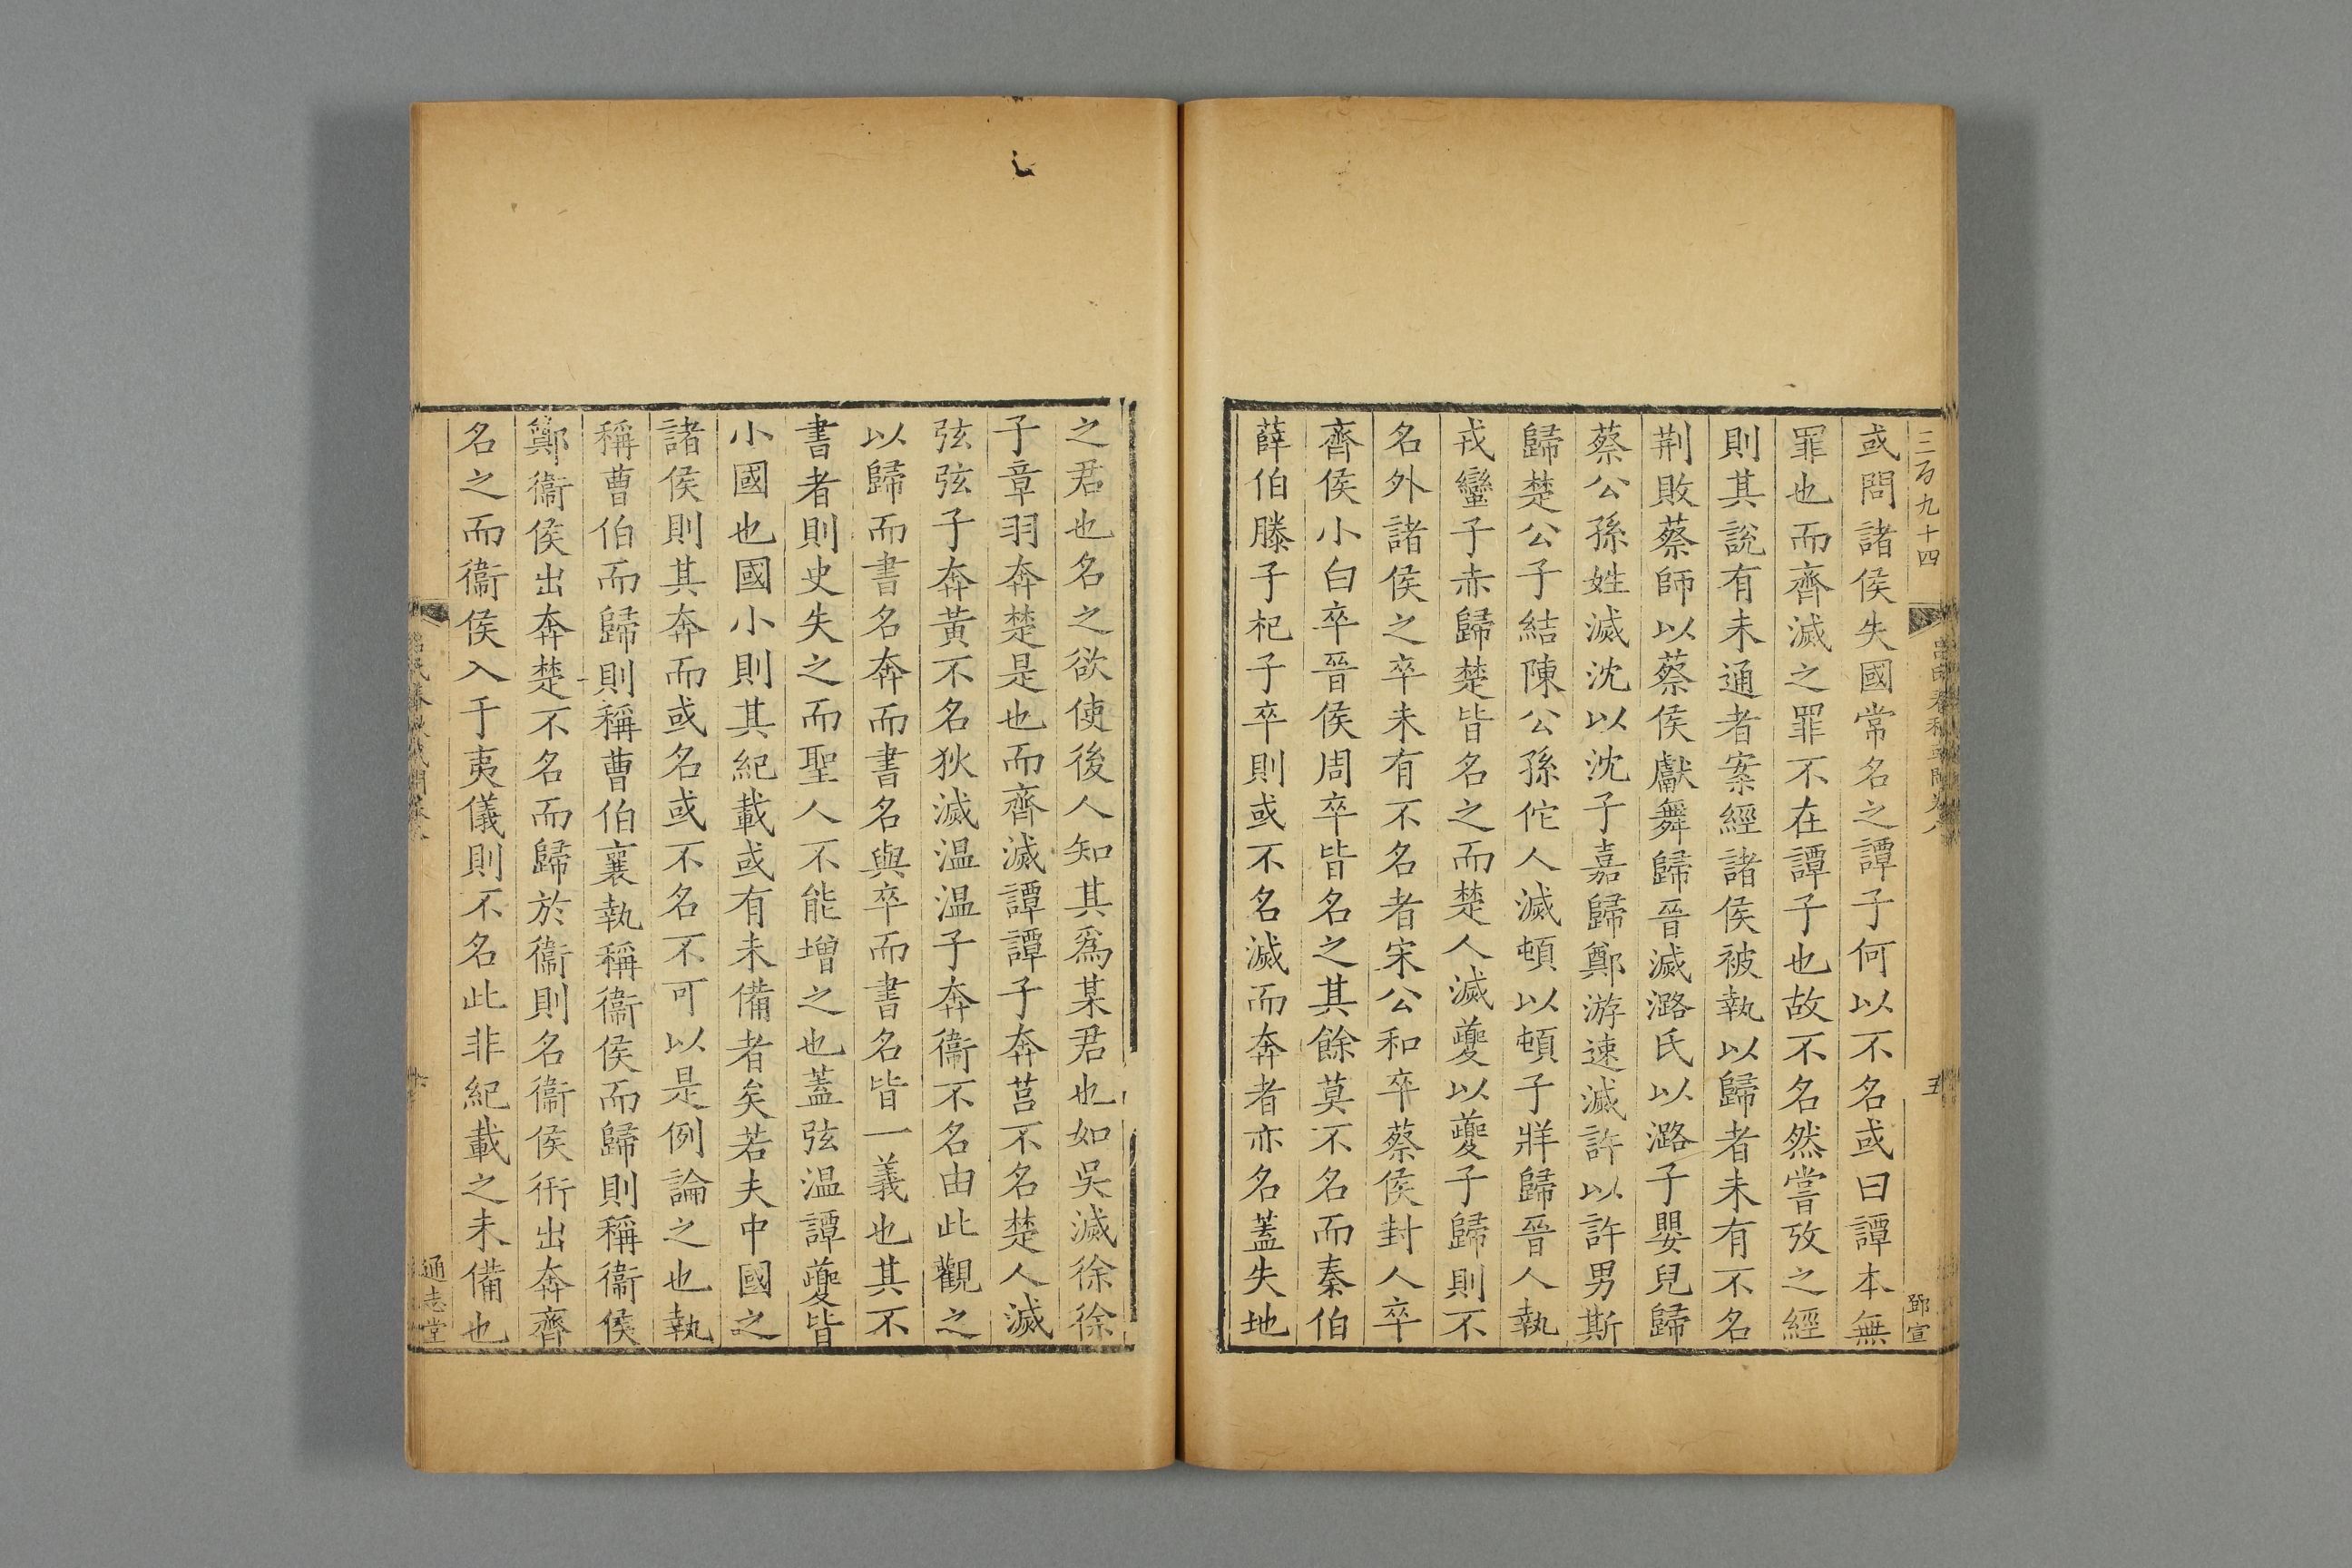 三百九十四
五
鄧宣
或問諸侯失國常名之譚子何以不名或曰譚本無
罪也而齊滅之罪不在譚子也故不名然嘗攷之經
則其說有未通者案經諸侯被執以歸者未有不名
荆敗蔡師以蔡侯獻舞歸晉滅潞氏以潞子嬰兒歸
蔡公孫姓滅沈以沈子嘉歸鄭游速滅許以許男斯
歸楚公子結陳公孫佗人滅頓以頓子牂歸晉人執
戎蠻子赤歸楚皆名之而楚人滅夔以夔子歸則不
名外諸侯之卒未有不名者宋公和卒蔡侯封人卒
齊侯小白卒晉侯周卒皆名之其餘莫不名而秦伯
薛伯滕子杞子卒則或不名滅而奔者亦名蓋失地
之君也名之欲使後人知其爲某君也如吳滅徐徐
子章羽奔楚是也而齊滅譚譚子奔莒不名楚人滅
弦弦子奔黃不名狄滅温温子奔衞不名由此觀之
以歸而書名奔而書名與卒而書名皆一義也其不
書者則史失之而聖人不能增之也蓋弦温譚夔皆
小國也國小則其紀載或有未備者矣若夫中國之
諸侯則其奔而或名或不名不可以是例論之也執
稱曹伯而歸則稱曹伯襄執稱衞侯而歸則稱衞侯
鄭衞侯出奔楚不名而歸於衞則名衞侯衎出奔齊
名之而衞侯入于夷儀則不名此非紀載之未備也
通志堂